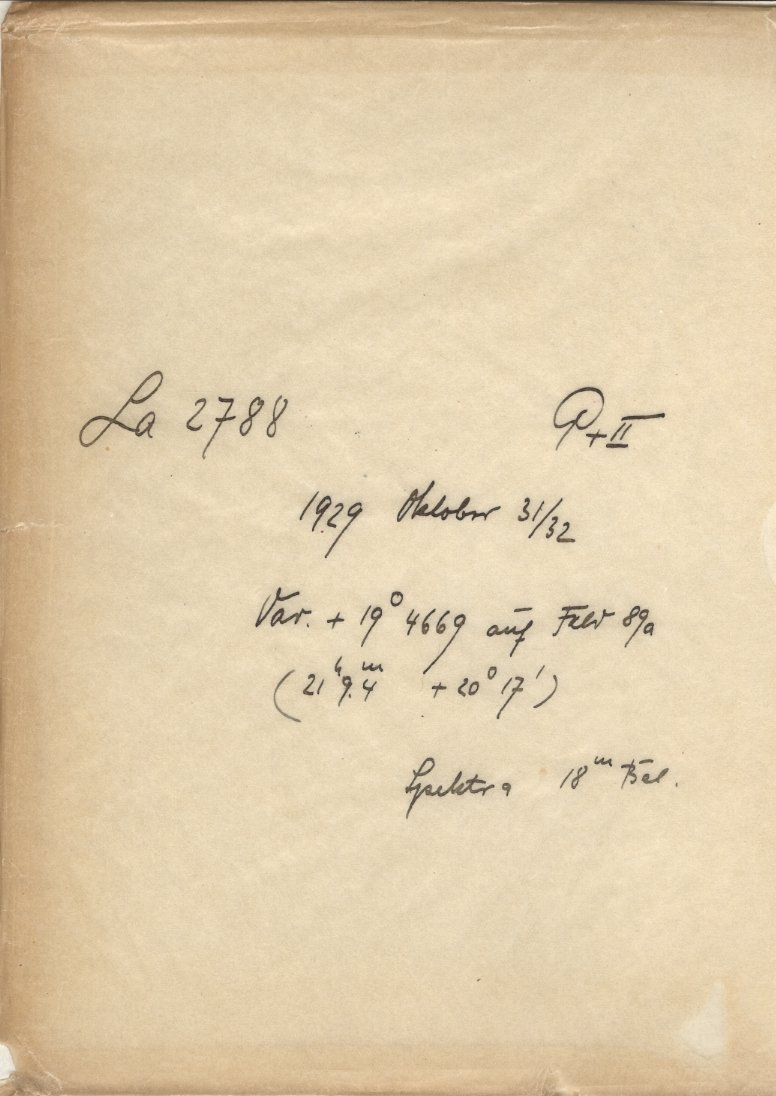 La 2788 P+II
1929 Oktober 31/32
Var. + 19° 4669 auf Feld 89a
(21ʰ 9.ᵐ4 + 20° 17')
Spektra 18ᵐ Bel.